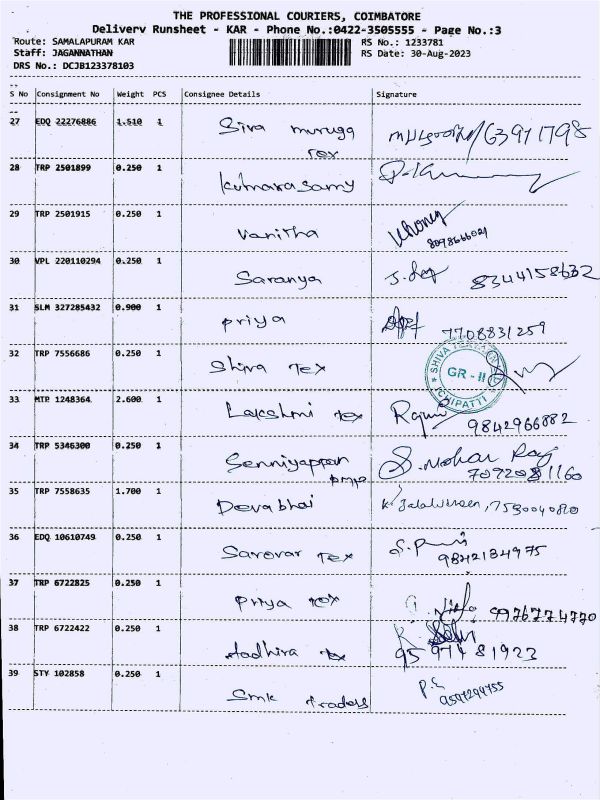 THE PROFESSIONAL COURIERS, COIMBATORE
Delivery Runsheet - KAR - Phone No.:0422-3505555 - Page No.:3
Route: SAMALAPURAM KAR RS No.: 1233781
Staff: JAGANNATHAN RS Date: 30-Aug-2023
DRS No.: DCJB123378103
S No Consignment No Weight PCS Consignee Details Signature
27 EDQ 22276886 1.510 1 Siva muruga
Tex
28 TRP 2501899 0.250 1 Kumarasamy
29 TRP 2501915 0.250 1 Vanitha
8098666021
30 VPL 220110294 0.250 1 Saranya 8344158632
31 SLM 327285432 0.900 1 Priya 7708831259
32 TRP 7556686 0.250 1 Shiva Tex GR - II
33 MTP 1248364 2.600 1 Lakshmi Tex
9842966882
34 TRP 5346300 0.250 1 Senniyappan S. Mohan Raj
35 TRP 7558635 1.700 1 Devabhai
36 EDQ 10610749 0.250 1 Sarovar Tex
9842134975
37 TRP 6722825 0.250 1 Priya Tex 9976774770
38 TRP 6722422 0.250 1 Aadhira Tex 9597481923
39 STY 102858 0.250 1 Smk Traders P.S
9597294755